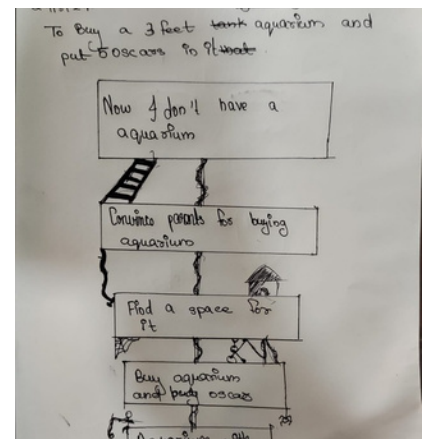 To Buy a 3 feet tank aquarium and
put 5 oscars in it that.
Now I don't have a
aquarium
Convince parents for buying
aquarium
Find a space for
it
Buy aquarium
and oscars